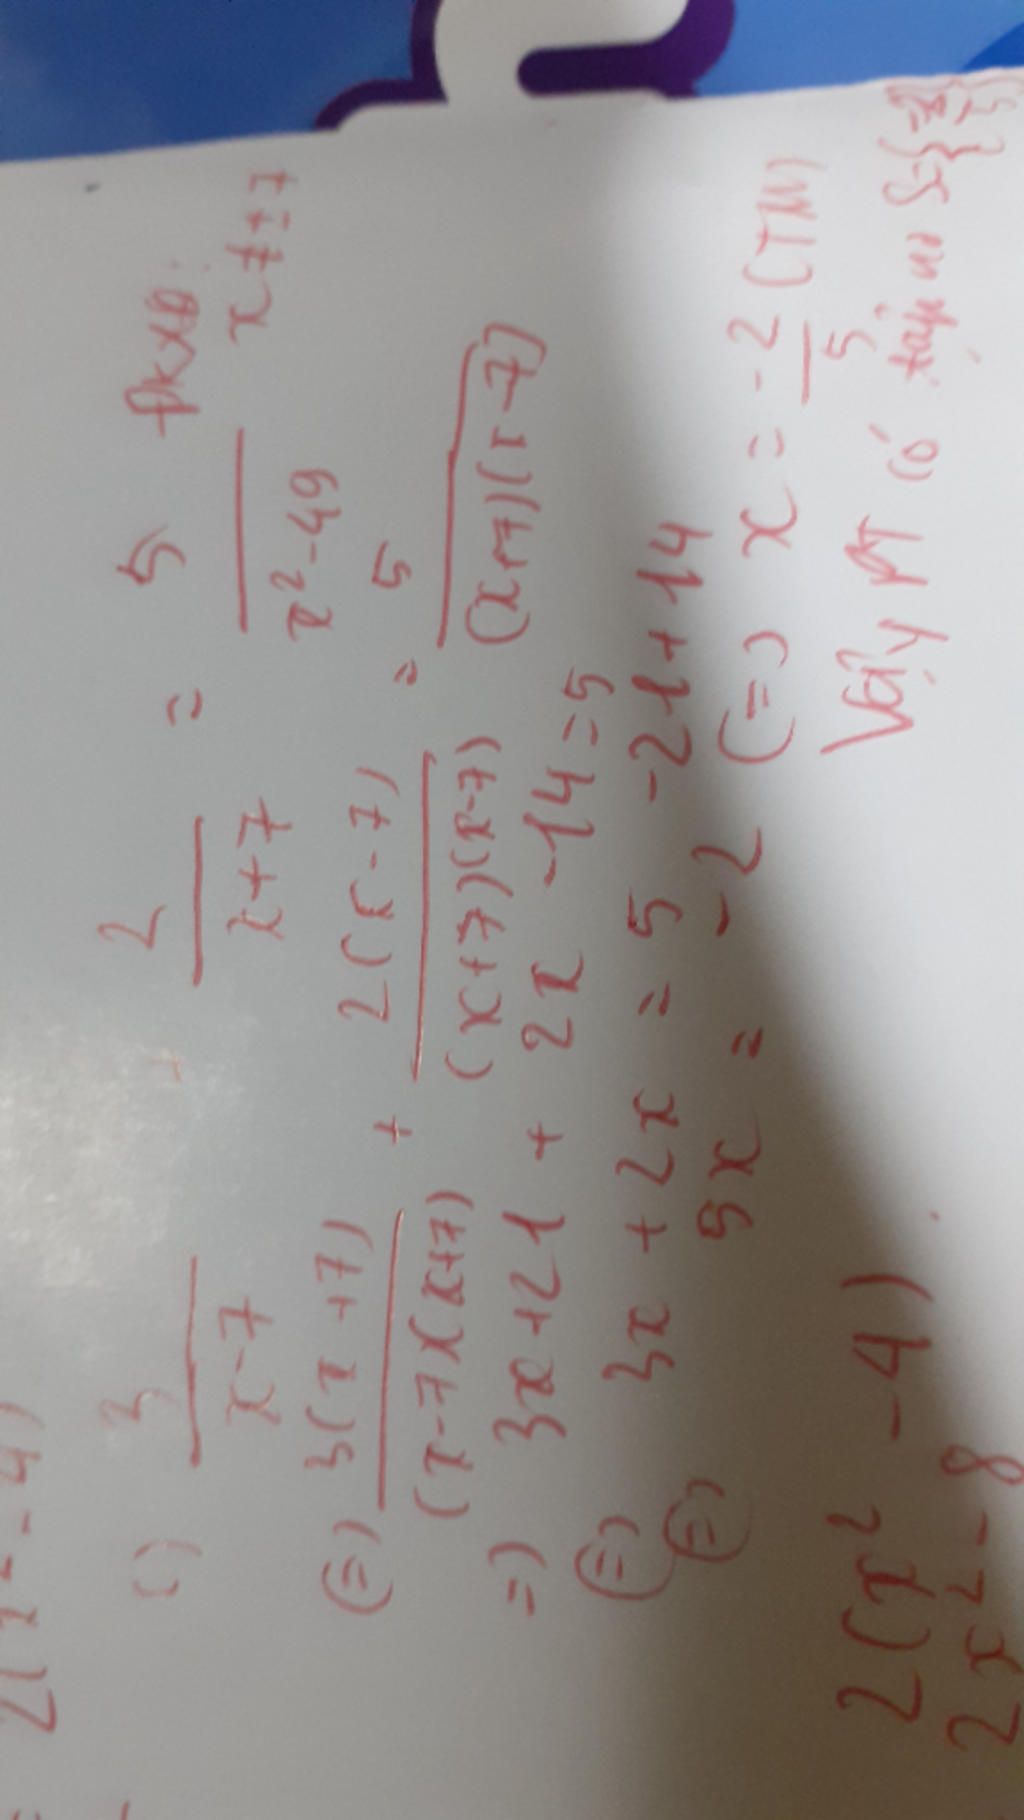 = 2(x² - 4)
c) 3/(x-7) + 2/(x+7) = 5/(x²-49) ĐKXĐ: x ≠ ±7
(=) 3(x+7)/(x-7)(x+7) + 2(x-7)/(x+7)(x-7) = 5/(x+7)(x-7)
=) 3x+21 + 2x -14 = 5
(=) 3x + 2x = 5 -21+14
(=) 5x = -2 (=) x = -2/5 (TM)
2(x² - 4) Vậy PT có tập no S={-2/5}
2x² - 8